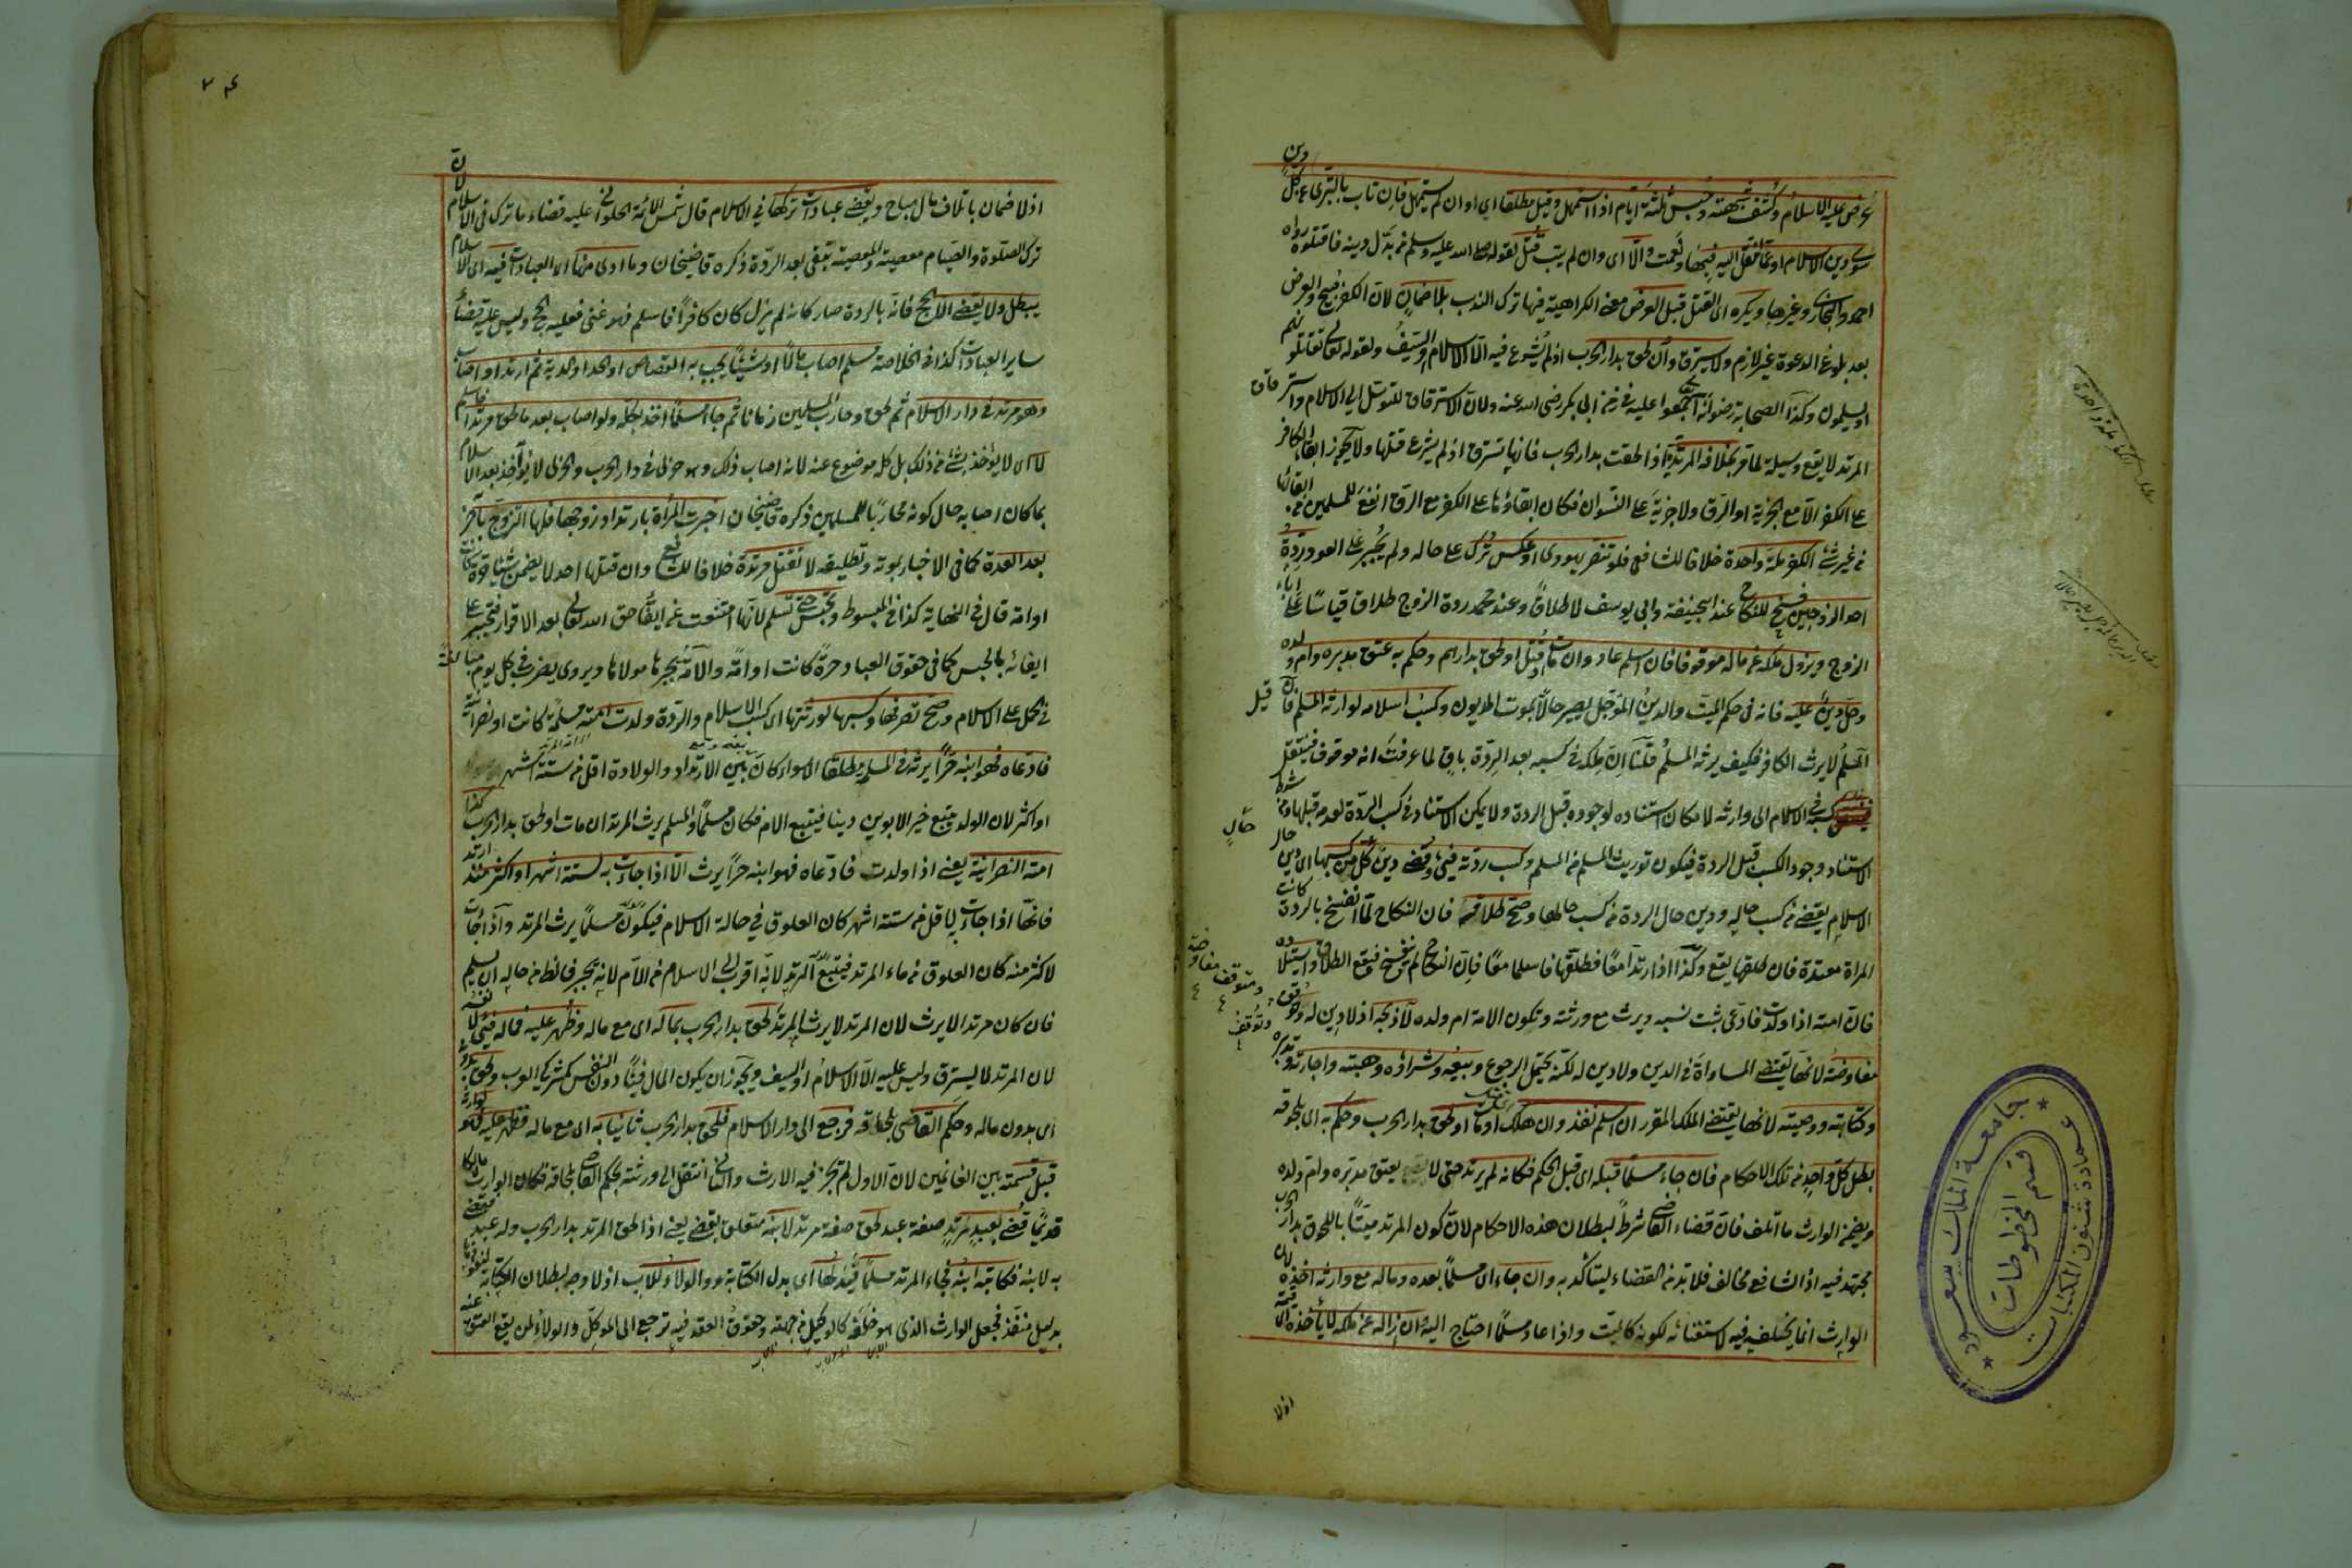 عرض عليه الاسلام وكشف شبهته وحبس ثلثة ايام اذا استمهل وقيل مطلقا اي او ان لم يستمهل فان تاب بالتبرى عن كل دين
سوى دين الاسلام او عما انتقل اليه فبها ونعمت والا اى وان لم يتب قتل لقوله صلى الله عليه وسلم من بدل دينه فاقتلوه رواه
احمد والبخارى وغيرها ويكره اى القتل قبل العرض معنى الكراهية فيها ترك الندب بلا ضمان لان الكفر مبيح والعرض
بعد بلوغ الدعوة غير لازم ولا يسترق وان لحق بدار الحرب اذ لم يشرع فيه الا الاسلام او السيف ولقوله تعالى تقاتلونهم
او يسلمون وكذا الصحابة رضوان اجمعوا عليه فى زمن ابى بكر رضى الله عنه ولان الاسترقاق للتوسل الى الاسلام واسترقاق
المرتد لا يقع وسيلة لما مر بخلاف المرتدة اذا لحقت بدار الحرب فانها تسترق اذ لم يشرع قتلها ولا يجوز ابقاء الكافر
على الكفر الا مع الجزية او الرق ولا جزية على النسوان فكان ابقاؤها على الكفر مع الرق انفع للمسلمين من ابقائها
من غير شئ الكفر ملة واحدة خلافا للشافعى فلو تنصر يهودى او عكس ترك على حاله ولم يجبر على العود ردة
احد الزوجين فسخ للنكاح عند ابيحنيفة وابى يوسف لا طلاق وعند محمد ردة الزوج طلاق قياسا على اباء
الزوج ويزول ملكه عن ماله موقوفا فان اسلم عاد وان مات او قتل او لحق بدارهم وحكم به عتق مدبره وام ولده
وحل دين عليه فانه فى حكم الميت والدين المؤجل يصير حالا بموت المديون وكسب اسلامه لوارثه المسلم فان قيل
المسلم لا يرث الكافر فكيف يرثه المسلم قلنا ان ملكه فى كسبه بعد الردة باق لما عرفت انه موقوف فينتقل
كسبه فى الاسلام الى وارثه لامكان استناده لوجوده قبل الردة ولا يمكن الاستناد فى كسب الردة لعدمه قبلها ومن شرط
الاستناد وجود الكسب قبل الردة فيكون توريث المسلم من المسلم وكسب ردته فيئ وقضى دين كل حال من كسبها اى دين
الاسلام يقضى من كسب حاله ودين حال الردة من كسب حالها وصح طلاقه فان النكاح لما انفسخ بالردة كانت
المراة معتدة فان طلقها يقع وكذا اذا ارتدا معا فطلقها فاسلما معا فان النكاح لم ينفسخ فيقع الطلاق واستيلاده
فان امته اذا ولدت فادعى يثبت نسبه ويرث مع ورثته وتكون الامة ام ولده لا ذبحه اذ لا دين له وتوقف
مفاوضة لانها تقتضى المساواة فى الدين ولا دين له لكنه يحتمل الرجوع وبيعه وشراؤه وهبته واجارته وتدبيره
وكتابته ووصيته لانها يقتضى الملك المقرر ان اسلم نفذ وان هلك اى مات او لحق بدار الحرب وحكم به اى بلحوقه
بطل كل واحد من تلك الاحكام فان جاء مسلما قبله اى قبل الحكم فكانه لم يرتد حتى لا يعتق مدبره وام ولده
ويضمن الوارث ما اتلف فان قضاء القاضى شرط لبطلان هذه الاحكام لان كون المرتد ميتا باللحوق بدار الحرب
مجتهد فيه اذ الشافعى مخالف فلا بد من القضاء ليتاكد به وان جاء اى مسلما بعده وماله مع وارثه اخذه لان
الوارث انما يخلف فيه لاستغنائه لكونه كالميت واذا عاد مسلما احتاج اليه وان ازاله عن ملكه لا يأخذه الا قيمة
اذ لا
مفاوضة
اذ لا ضمان باتلاف مال مباح ويقضى عبادات تركها في الاسلام قال شمس الائمة الحلوانى عليه قضاء ما ترك فى الاسلام لان
ترك الصلوة والصيام معصية والمعصية تبقى بعد الردة ذكره قاضيخان وما ادى منها اى العبادات فيه اى الاسلام
يبطل ولا يقضى الا الحج فانه بالردة صار كانه لم يزل كان كافرا فاسلم فهو غنى فعليه الحج وليس عليه قضاء
ساير العبادات كذا فى الخلاصة مسلم اصاب مالا او شيئا يجب به القصاص او الحد او الدية ثم ارتد او اصاب
وهو مرتد فى دار الاسلام ثم لحق وحارب المسلمين زمانا ثم جاء مسلما اخذ بكله ولو اصاب بعد ما لحق مرتدا فاسلم
لا اى لا يؤخذ بشئ من ذلك بل كله موضوع عنه لانه اصاب ذلك وهو حربى فى دار الحرب والحربى لا يؤاخذ بعد الاسلام
بما كان اصابه حال كونه محاربا للمسلمين ذكره قاضيخان اخبرت المرأة بارتداد زوجها فلها التزوج باخر
بعد العدة كما فى الاخبار بموته وتطليقه لا تقتل مرتدة خلافا للشافعى وان قتلها احد لا يضمن شيئا حرة كانت
او امة قال فى النهاية كذا فى المبسوط وتحبس حتى تسلم لانها امتنعت عن ايفاء حق الله تعالى بعد الاقرار فتجبر على
ايفائه بالحبس كما فى حقوق العباد حرة كانت او امة والامة يجبرها مولاها ويروى يضرب فى كل يوم مبالغة
فى الحمل على الاسلام وصح تصرفها وكسبها لورثتها اى كسب الاسلام والردة ولدت امته مسلمة كانت او نصرانية
فادعاه فهو ابنه حرا يرثه فى المسلمة مطلقا اى سواء كان بين الارتداد والولادة اقل من ستة اشهر
او اكثر لان الولد يتبع خير الابوين دينا فيتبع الام فكان مسلما والمسلم يرث المرتد ان مات او لحق بدار الحرب كذا
امته النصرانية يعنى اذا ولدت فادعاه فهو ابنه حرا يرث الا اذا جاءت به لستة اشهر او اكثر منذ ارتد
فانها اذا جاءت به لاقل من ستة اشهر كان العلوق في حالة الاسلام فيكون مسلما يرث المرتد واذا جاءت
لاكثر منه كان العلوق من ماء المرتد فيتبع المرتد لانه اقرب الى الاسلام من الام لانه يجبر فالظاهر من حاله ان يسلم
فان كان مرتدا لا يرث لان المرتد لا يرث المرتد لحق بدار الحرب بماله اى مع ماله وظهر عليه فماله فيئ لا نفسه
لان المرتد لا يسترق وليس عليه الا الاسلام او السيف ويجوز ان يكون المال فيئا دون النفس كمشركى العرب ولحق بدونه
اى بدون ماله وحكم القاضى بلحاقه فرجع الى دار الاسلام فلحق بدار الحرب ثانيا به اى مع ماله فظهر عليه فهو لوارثه
قبل قسمته بين الغانمين لان الاول لم يجر فيه الارث والثانى انتقل الى ورثته بحكم القاضى بلحاقه فكان الوارث مالكا
قديما قضى بعبد مرتد صفة عبد لحق صفة مرتد لابنه متعلق بقضى يعنى اذا لحق المرتد بدار الحرب وله عبد فقضى
به لابنه فكاتبه ابنه فجاء المرتد مسلما فبدلها اى بدل الكتابة والولاء للاب اذ لا وجه لبطلان الكتابة لنفوذها
بدليل منفذ فجعل الوارث الذى هو خلفه كالوكيل من جهته وحقوق العقد فيه ترجع الى الموكل والولاء لمن يقع العتق عنه
جامعة الملك سعود
عمادة شئون المكتبات
قسم المخطوطات